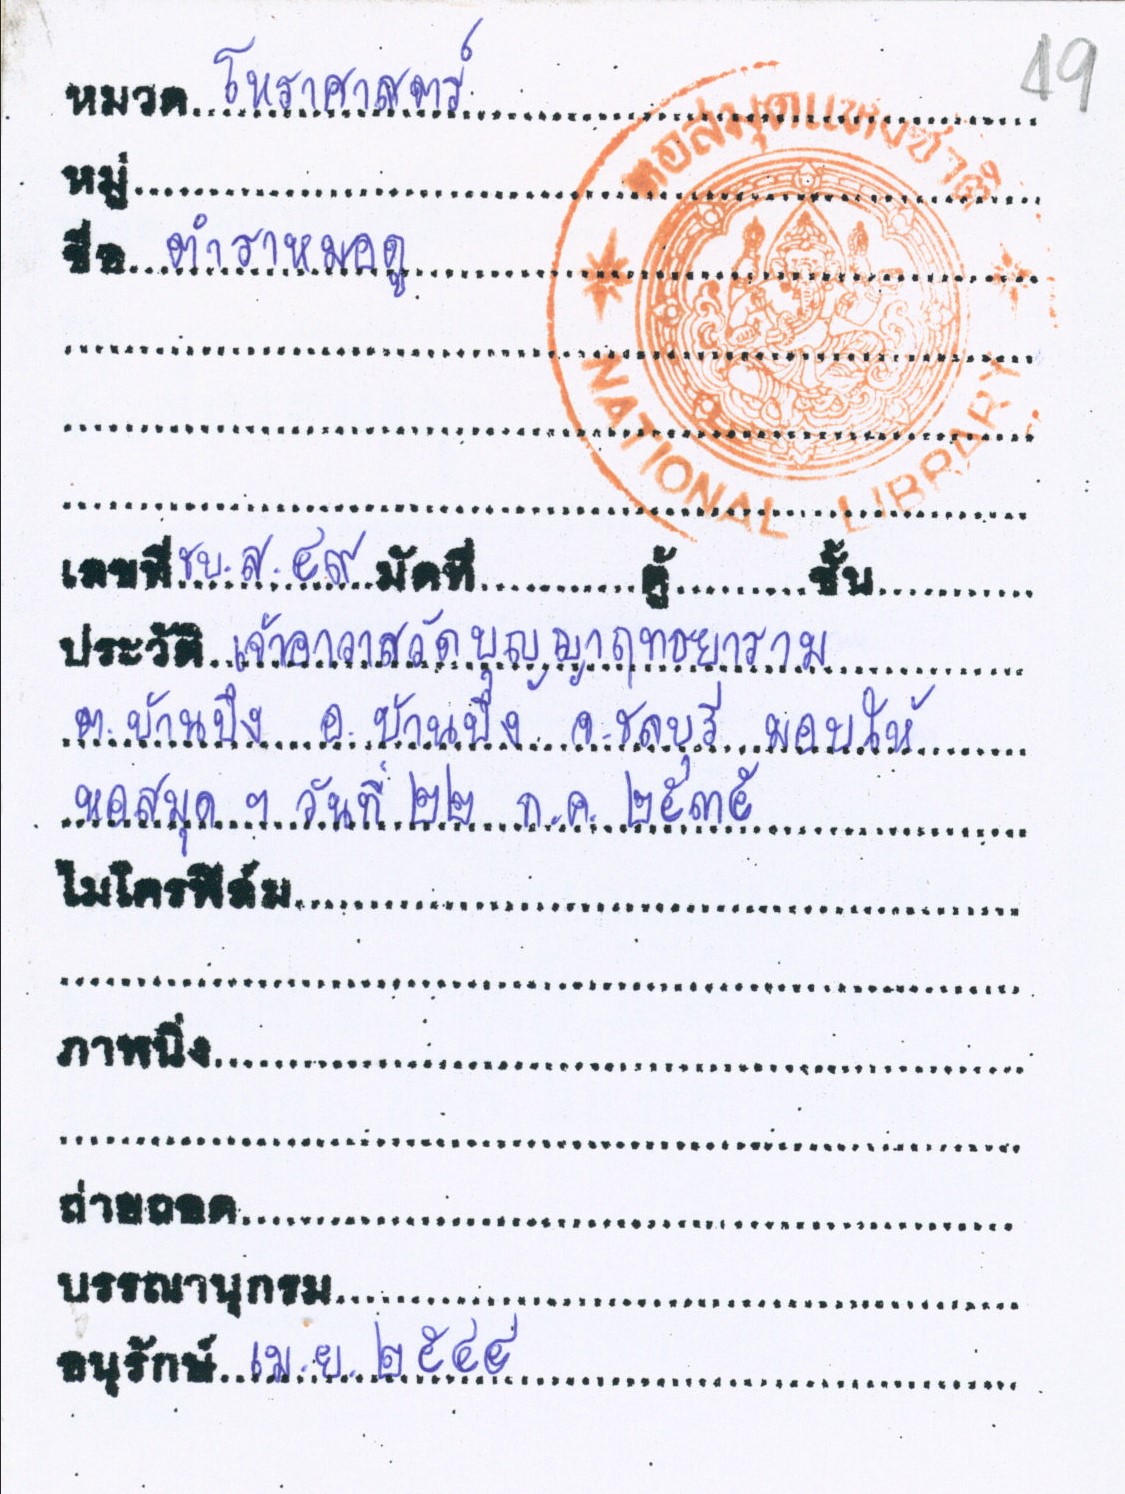 49
หมวด โหราศาสตร์
หอสมุดแห่งชาติ
หมู่
ชื่อ ตำราหมอดู
NATIONAL LIBRARY
เลขที่ ชบ.ส. ๔๙ มัดที่ ตู้ ชั้น
ประวัติ เจ้าอาวาสวัดบุญญาฤทธยาราม
ต.บ้านบึง อ.บ้านบึง จ.ชลบุรี มอบให้
หอสมุด ฯ วันที่ ๒๒ ก.ค. ๒๕๓๕
ไมโครฟิล์ม
ภาพนิ่ง
ถ่ายถอด
บรรณานุกรม
อนุรักษ์ เม.ย. ๒๕๔๔